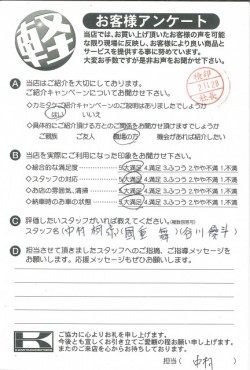 軽
お客様アンケート
当店では、お買い上げ頂いたお客様の声を可能
な限り現場に反映し、お客様により良い商品と
サービスを提供する事に努めています。
大変お手数ですが是非お声をお聞かせ下さい。
A 当店はご紹介を大切にしております。
ご紹介キャンペーンについてお聞かせ下さい。
◇カミタケご紹介キャンペーンのご説明はありましたでしょうか
はい いいえ
◇具体的にご紹介頂ける方とのご関係をお聞かせ頂けますでしょうか
ご親族 ご友人 職場の方 機会があれば紹介したい
B 当店を実際にご利用になった印象をお聞かせ下さい。
◇総合的な満足度 5.大満足 4.満足 3.ふつう 2.やや不満 1.不満
◇スタッフの対応 5.大満足 4.満足 3.ふつう 2.やや不満 1.不満
◇お店の雰囲気、清掃 5.大満足 4.満足 3.ふつう 2.やや不満 1.不満
◇納車時のお車の状態 5.大満足 4.満足 3.ふつう 2.やや不満 1.不満
C 評価したいスタッフがいれば教えてください。(複数回答可)
スタッフ名 (中村
D 担当させて頂きましたスタッフへのご指摘、ご指導メッセージを
お願いします。応援メッセージもぜひお願いします。
K
ご協力に心よりお礼を申し上げます。
今後とも宜しくお引き立てご愛顧の程お願い申し上げます。
またのご来店を心からお待ちしております。
担当 ( 中村 )